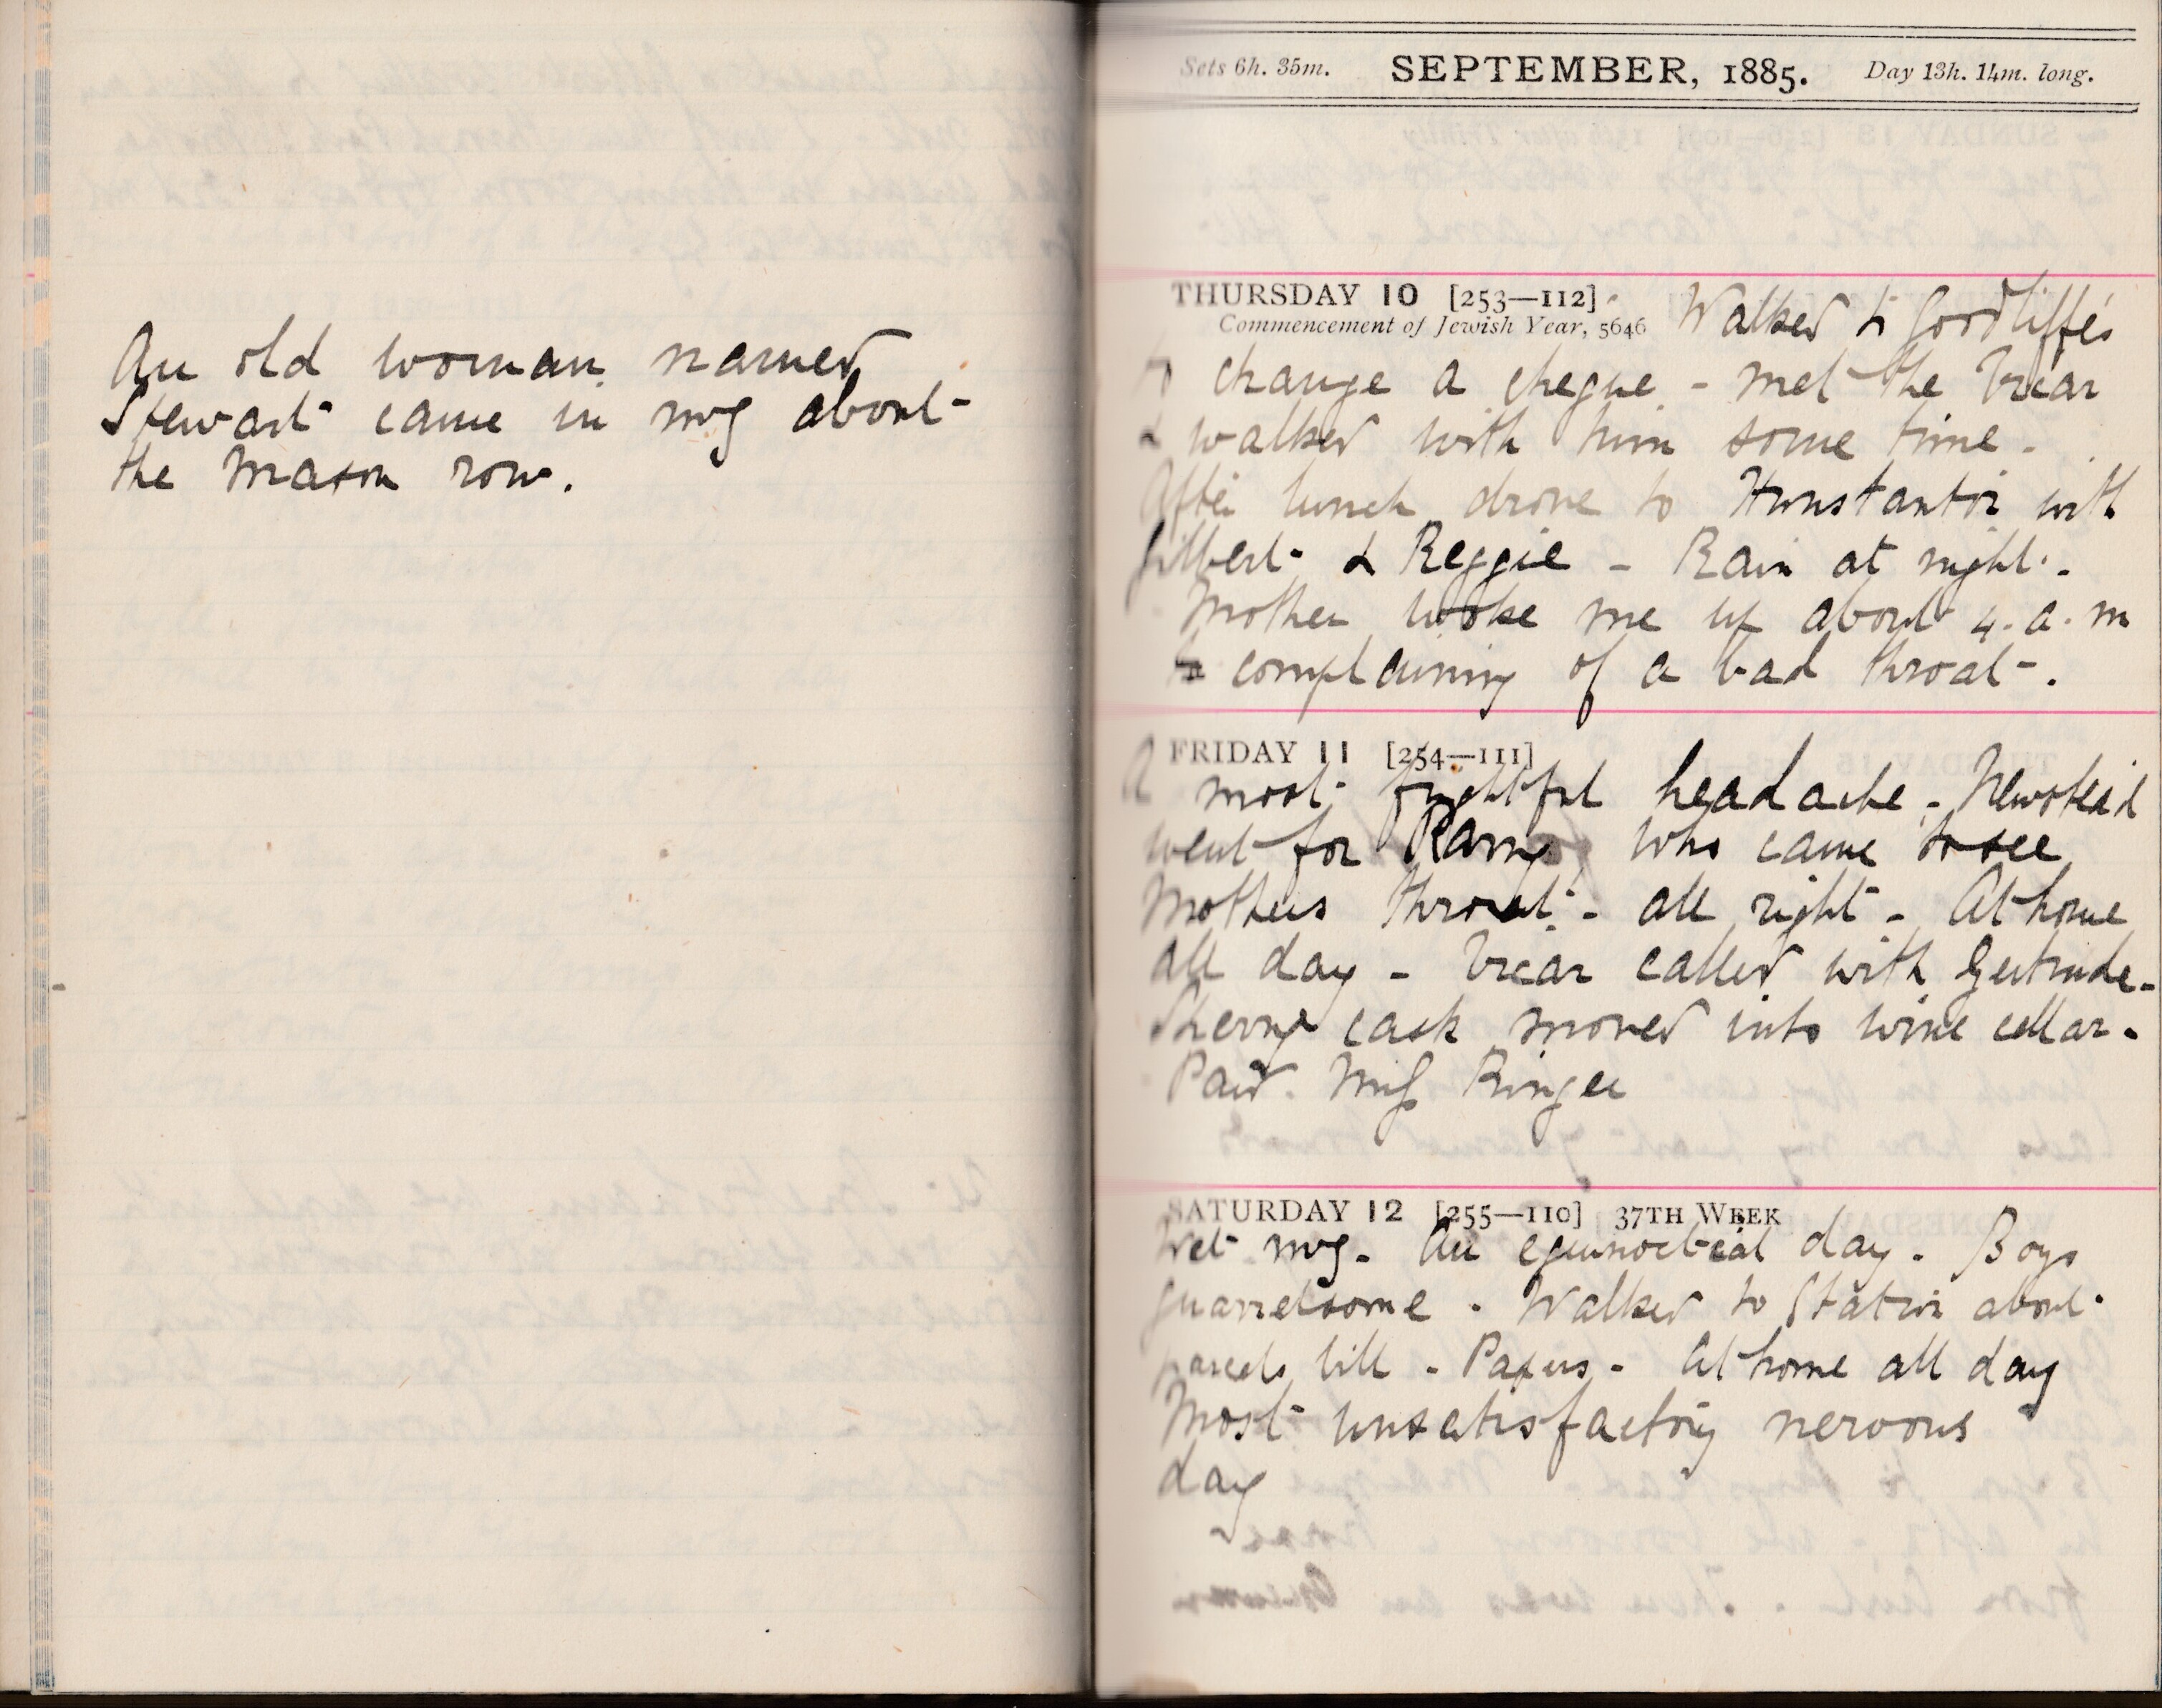 An old woman named
Stewart came in mng about
the Mason row.
Sets 6h. 35m. SEPTEMBER, 1885. Day 13h. 14m. long.
THURSDAY 10 [253—112] Walked to Goodliffe's
Commencement of Jewish Year, 5646
to change a cheque - met the Vicar
& walked with him some time -
After lunch drove to Hunstanton with
Gilbert & Reggie - Rain at night -
Mother woke me up about 4. a. m
complaining of a bad throat -.
FRIDAY 11 [254—111]
A most frightful headache - Newstead
went for who came to see
Mothers throat - all right - At home
all day - Vicar called with Gertrude -
Sherry cask moved into wine cellar -
Paid Miss Ringer
SATURDAY 12 [255—110] 37TH WEEK
Wet mng - An equinoctial day - Boys
quarrelsome - Walked to Station about
parcels bill - Papers - At home all day
Most unsatisfactory nervous
day